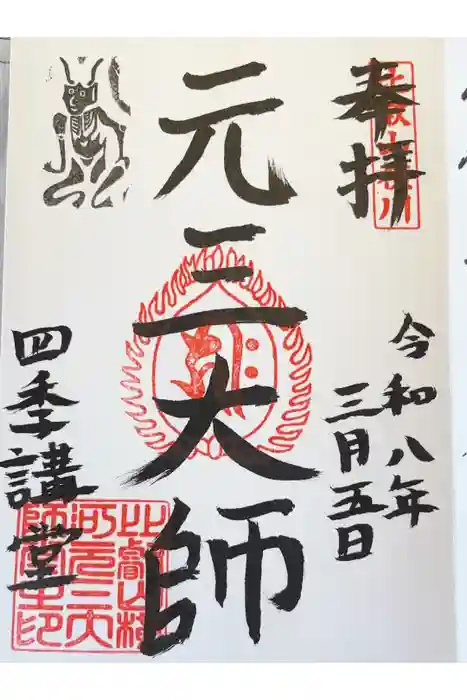 奉拝
令和八年
三月五日
元三大師
四季講堂
比叡山横
川元三大
師堂之印